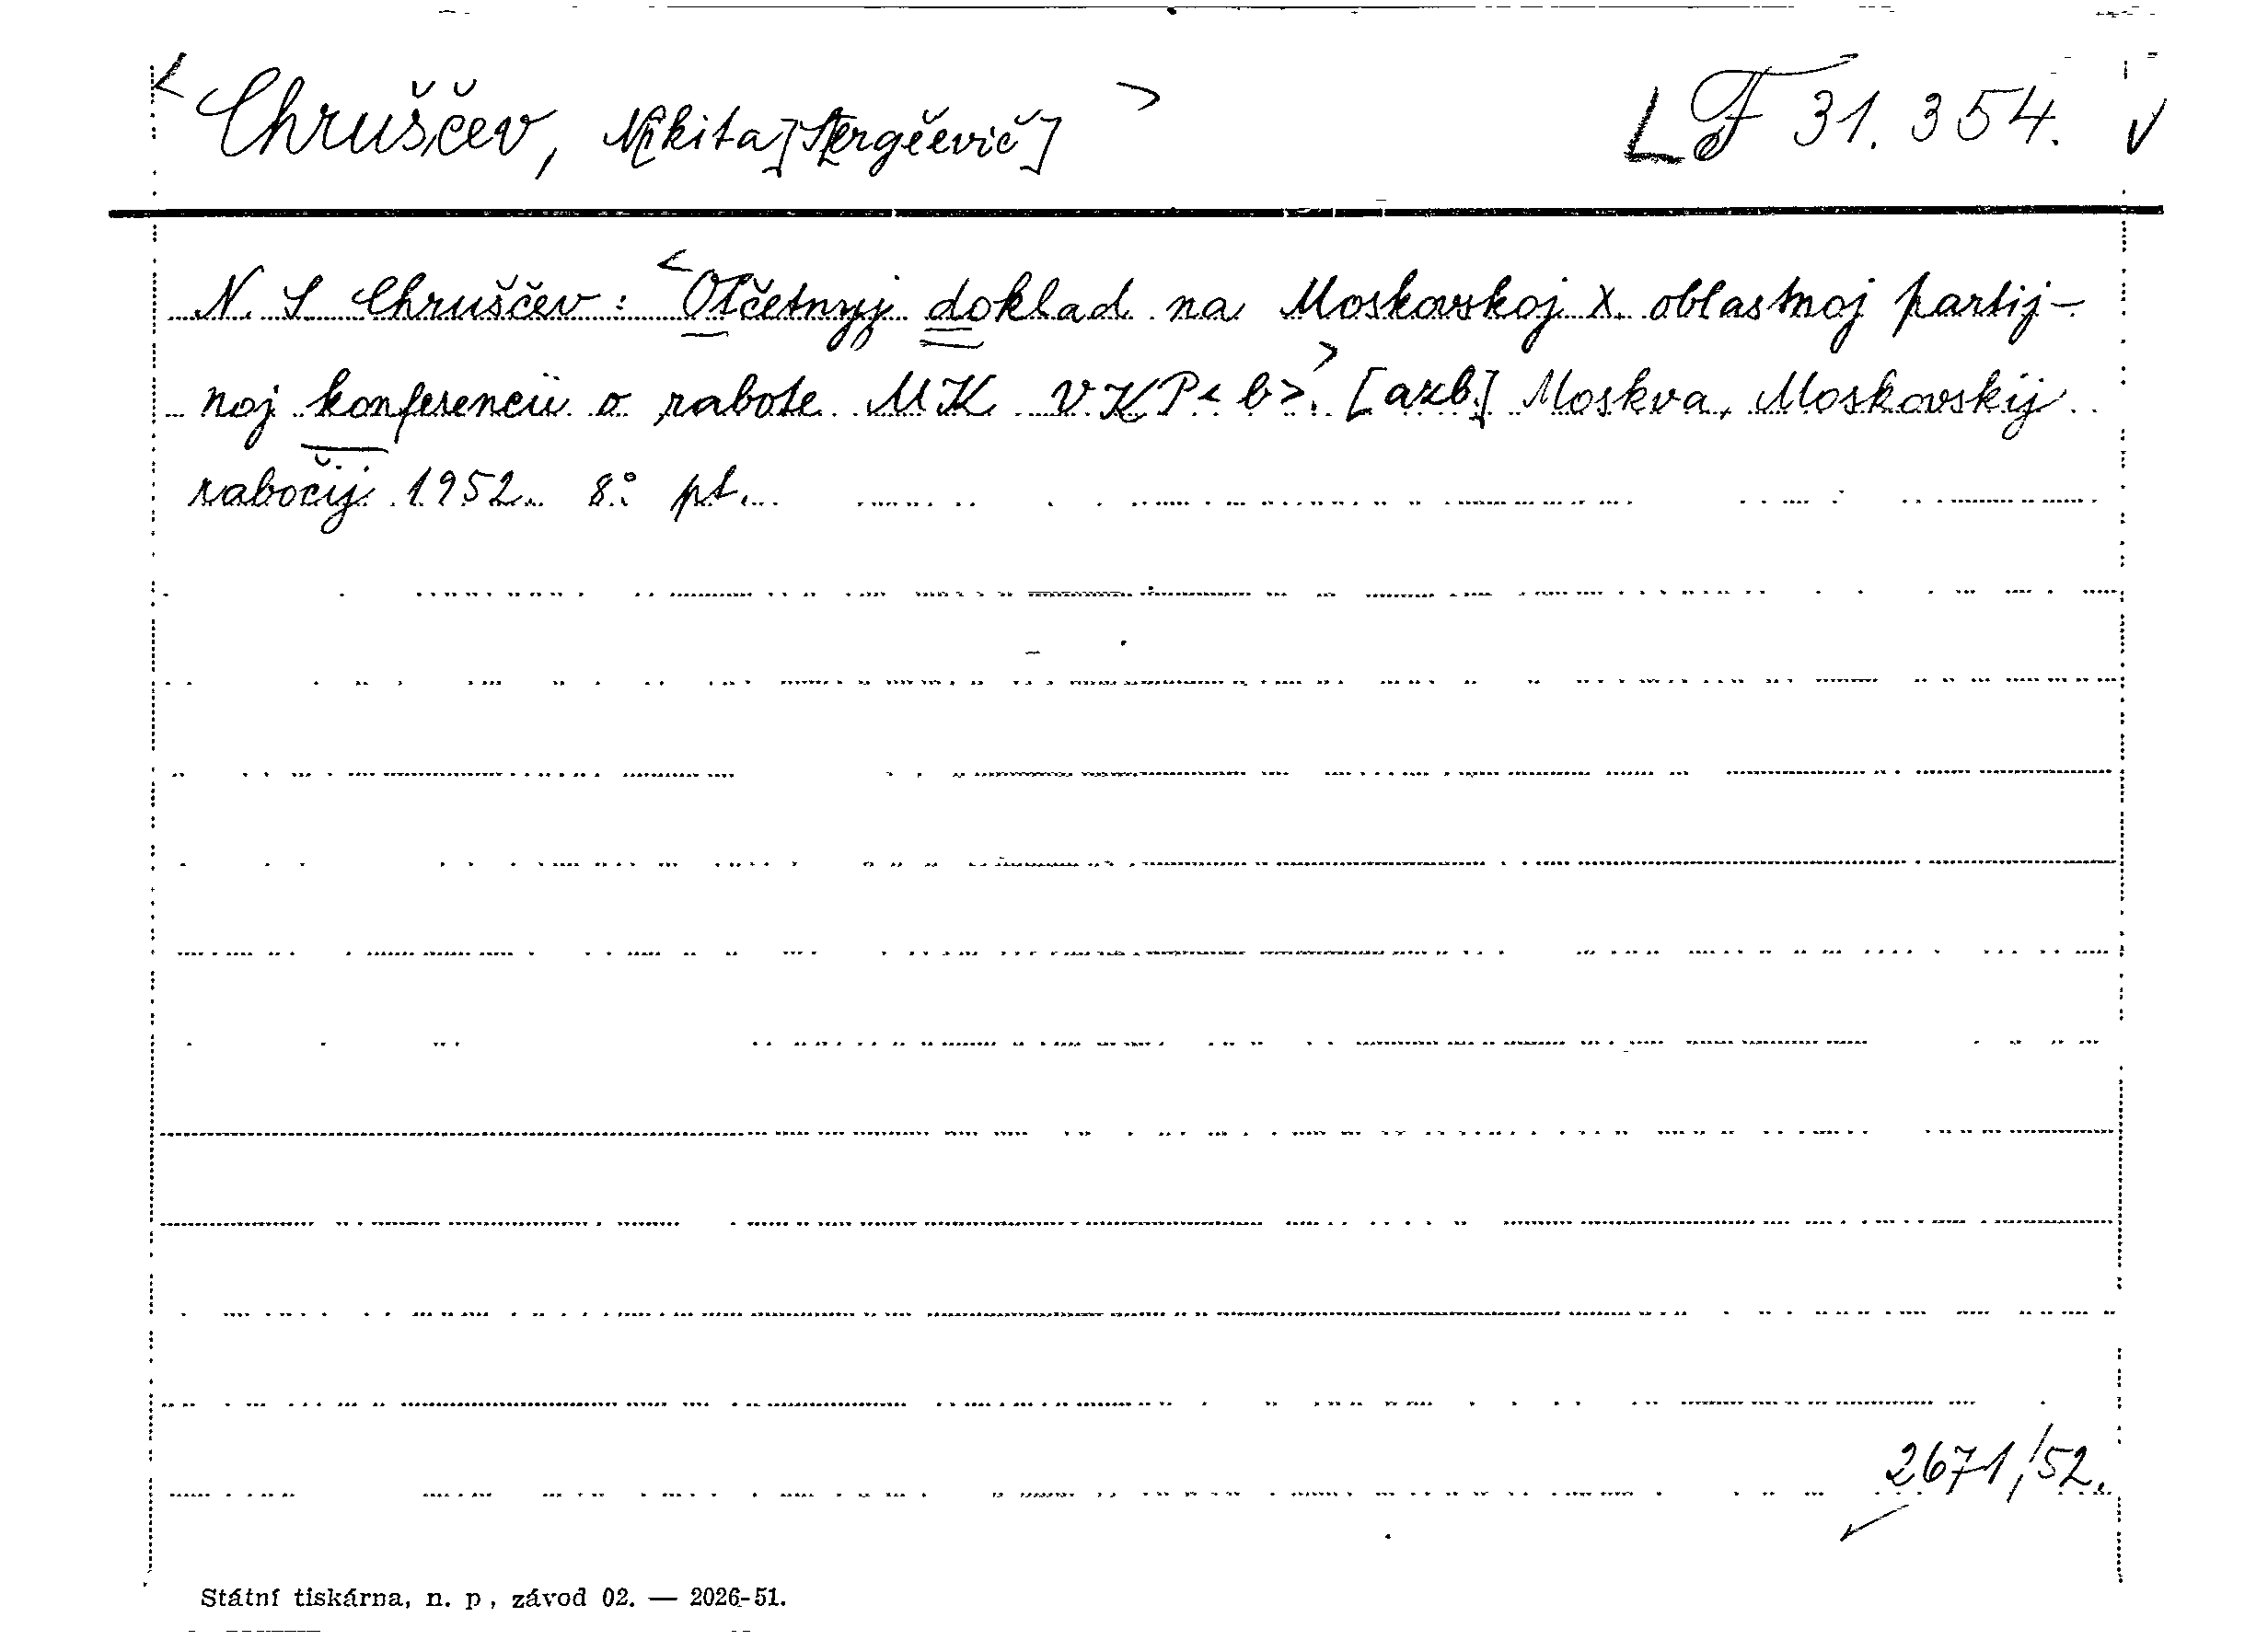 < Chruščev, Nikita [Sergěevič] > LF 31.354. v
N. S. Chruščev: <Otčetnyj doklad na Moskovskoj X. oblastnoj partij-
noj konferencii o rabote MK VKP<b>.> [azb.] Moskva, Moskovskij
rabočij 1952. 8° pt.
2671/52.
Státní tiskárna, n. p., závod 02. — 2026-51.